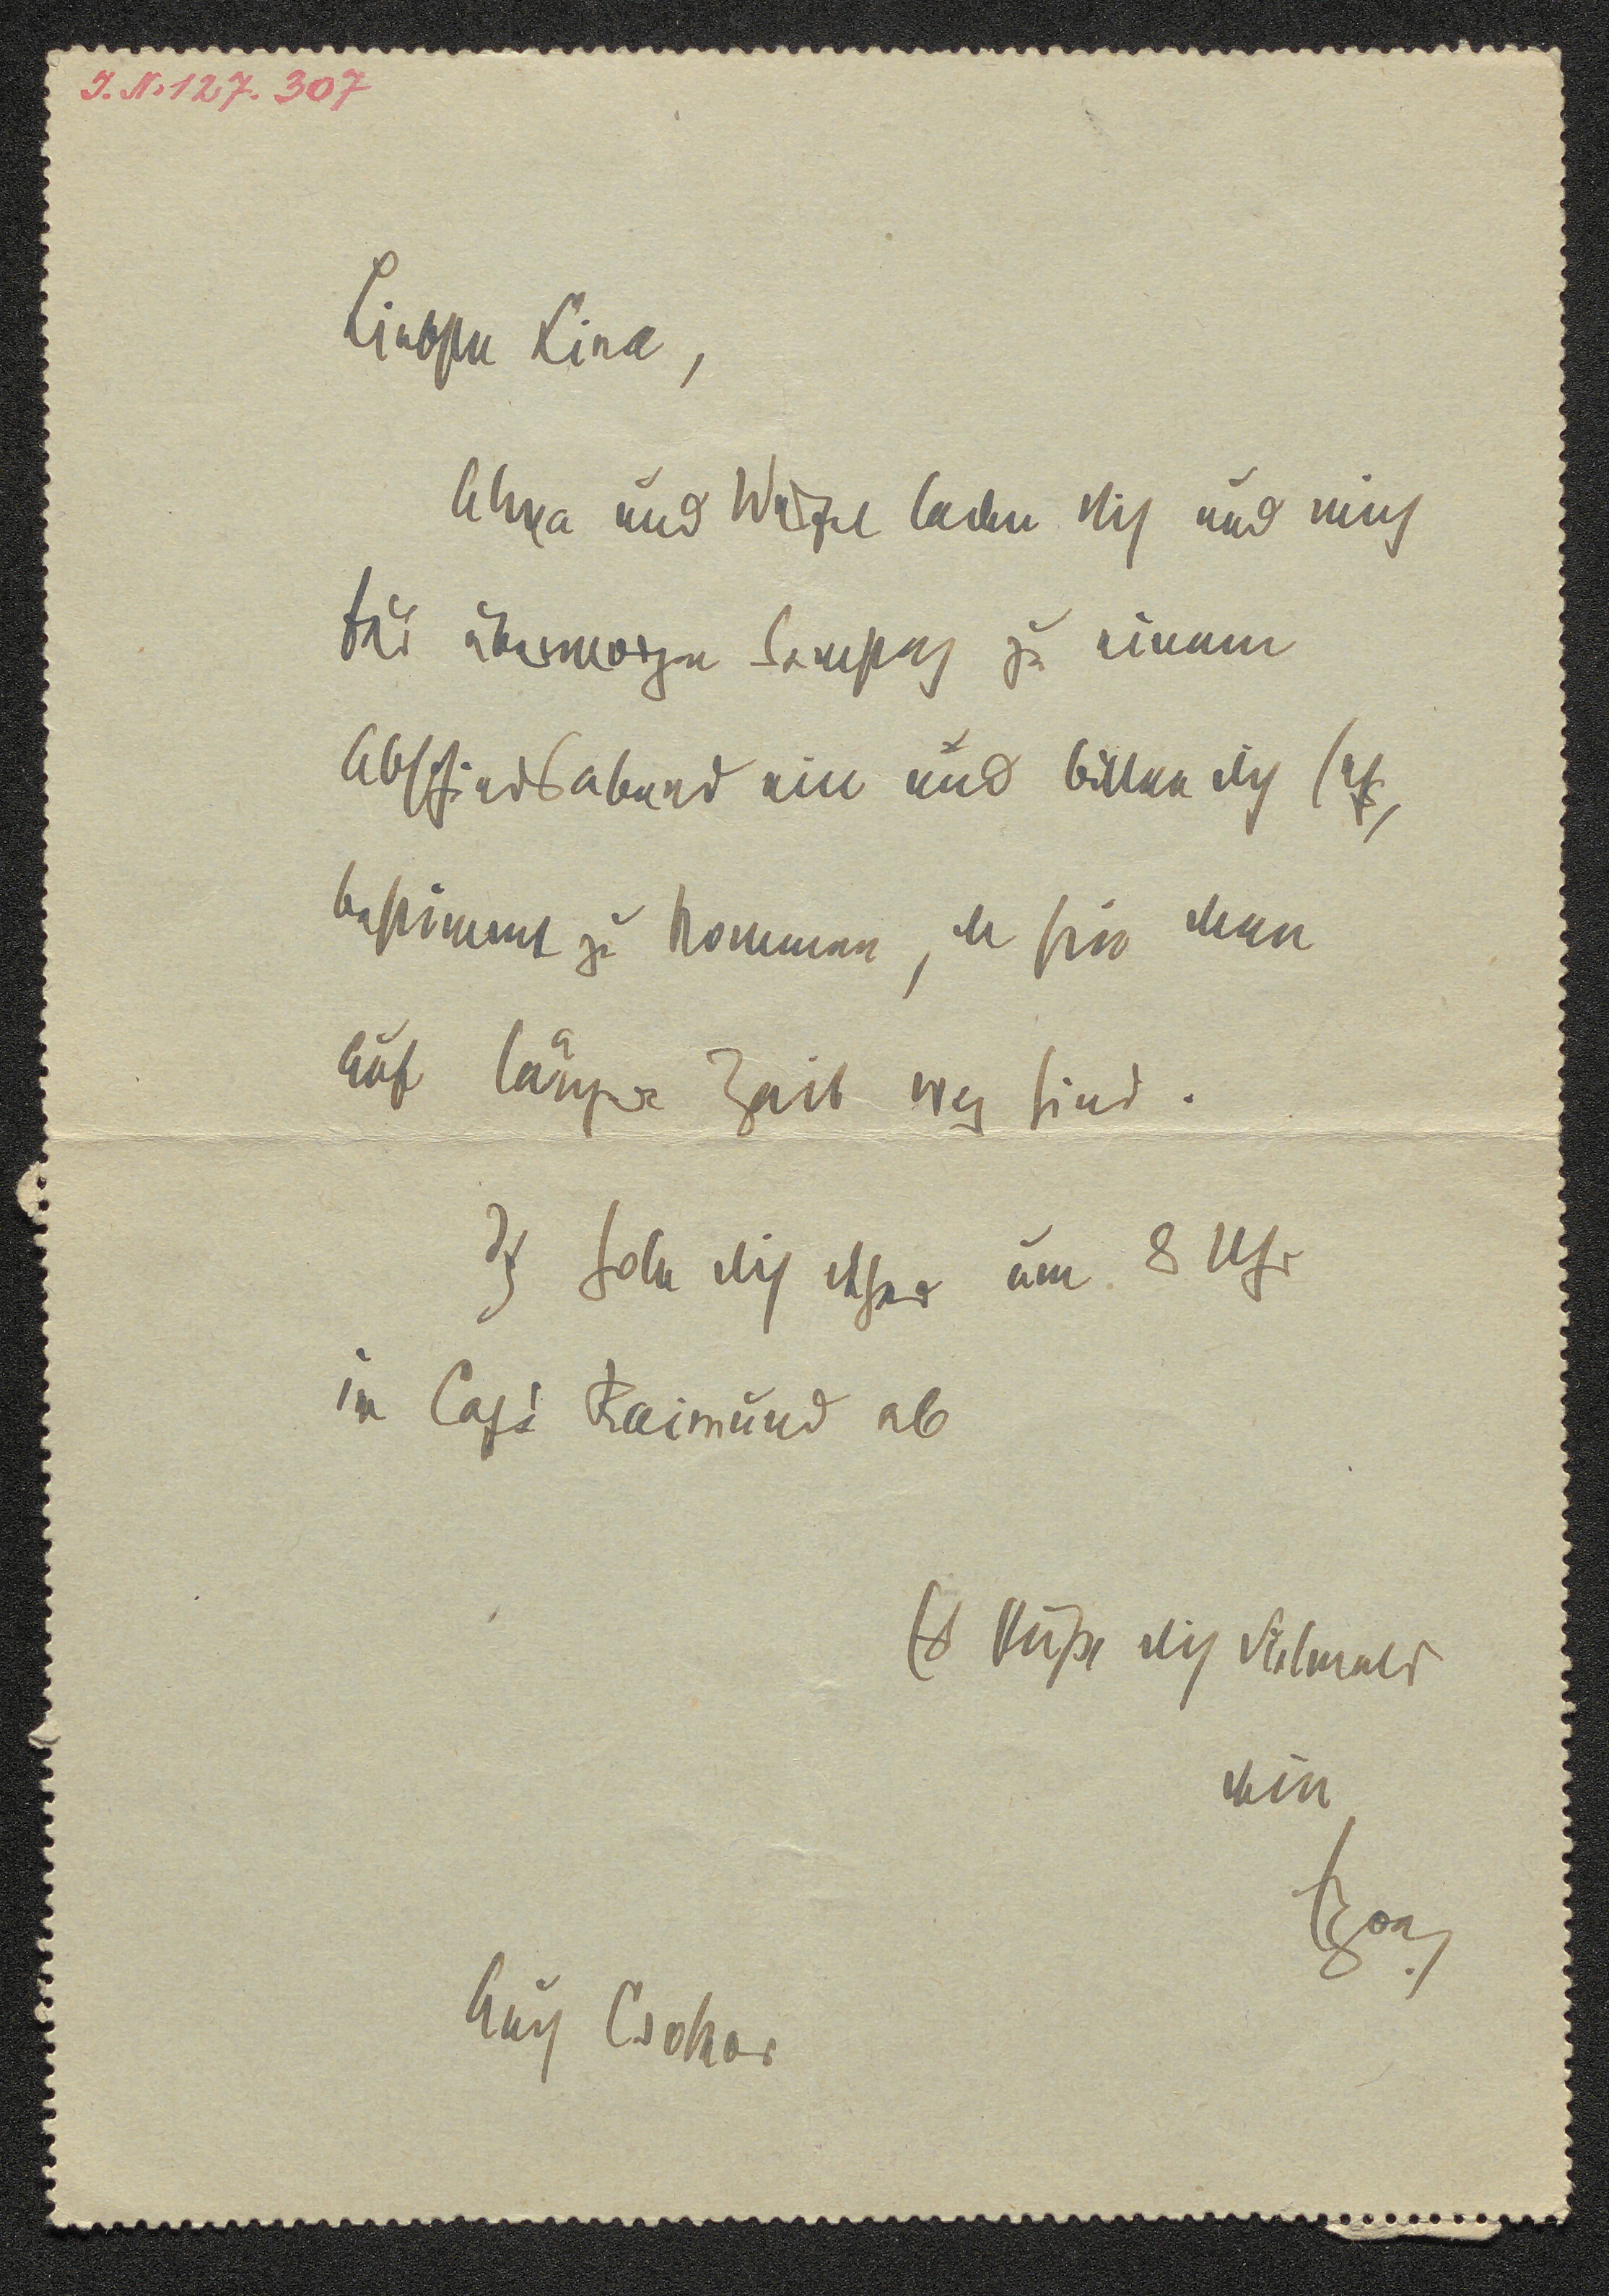 J. N. 127.307
Liebste Lina,
Alma und Werfel laden dich und mich
für übermorgen Samstag zu einem
Abschiedsabend ein und bitten dich sehr,
bestimmt zu kommen, da sie dann
auf längere Zeit weg sind.
Ich hole dich daher um 8 Uhr
im Café Raimund ab
Es küßt dich vielmals
dein
Auch Csokor